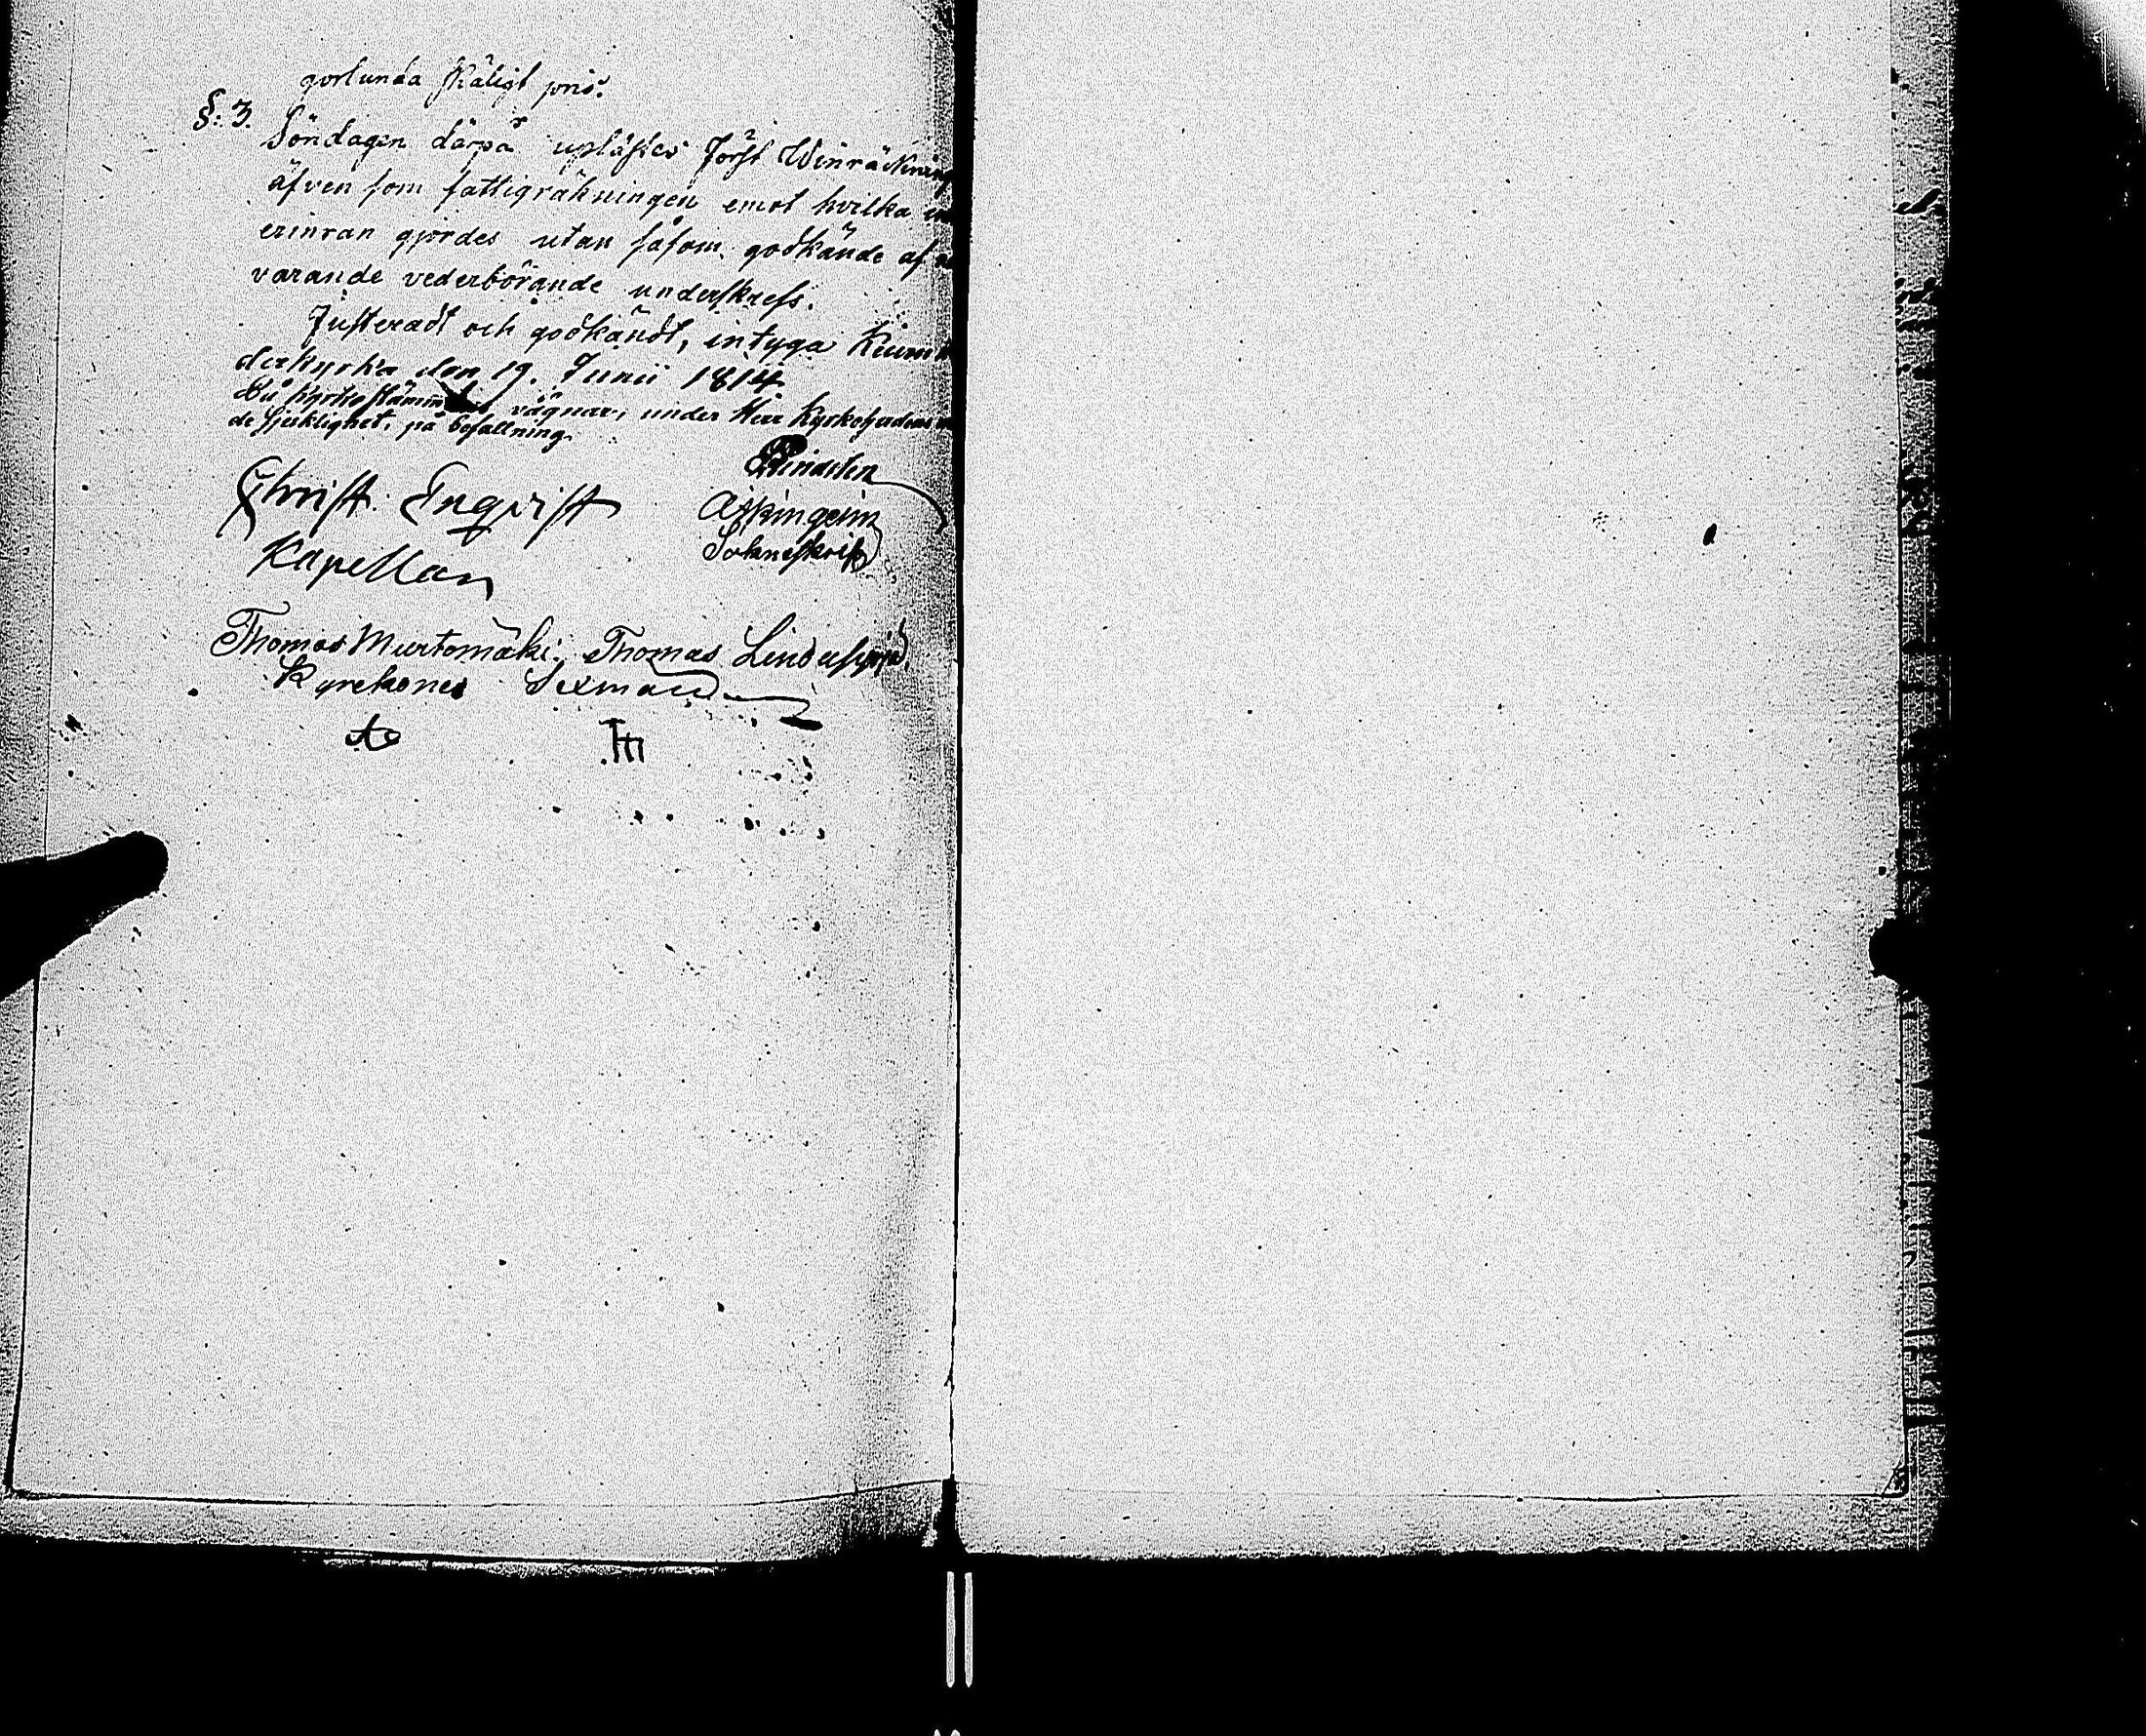 gorlunda skäligt pris.
§. 3. Söndagen därpå uplästes först Winräkning
äfven som fattigräkningen emot hvilka
erinran gjordes utan såsom godkände af
varande vederbörande underskrefs.
Justeradt och godkändt, intyga
derkyrka den 19. Junii 1814
På Kyrkostämmans vägnar, under Herr Kyrkoherdens
de sjuklighet, på befallning.
Christ. Enqvist
Kapellan
Sokneskrif
Thomas Murtomäki. Thomas
Kyrckones Sexman